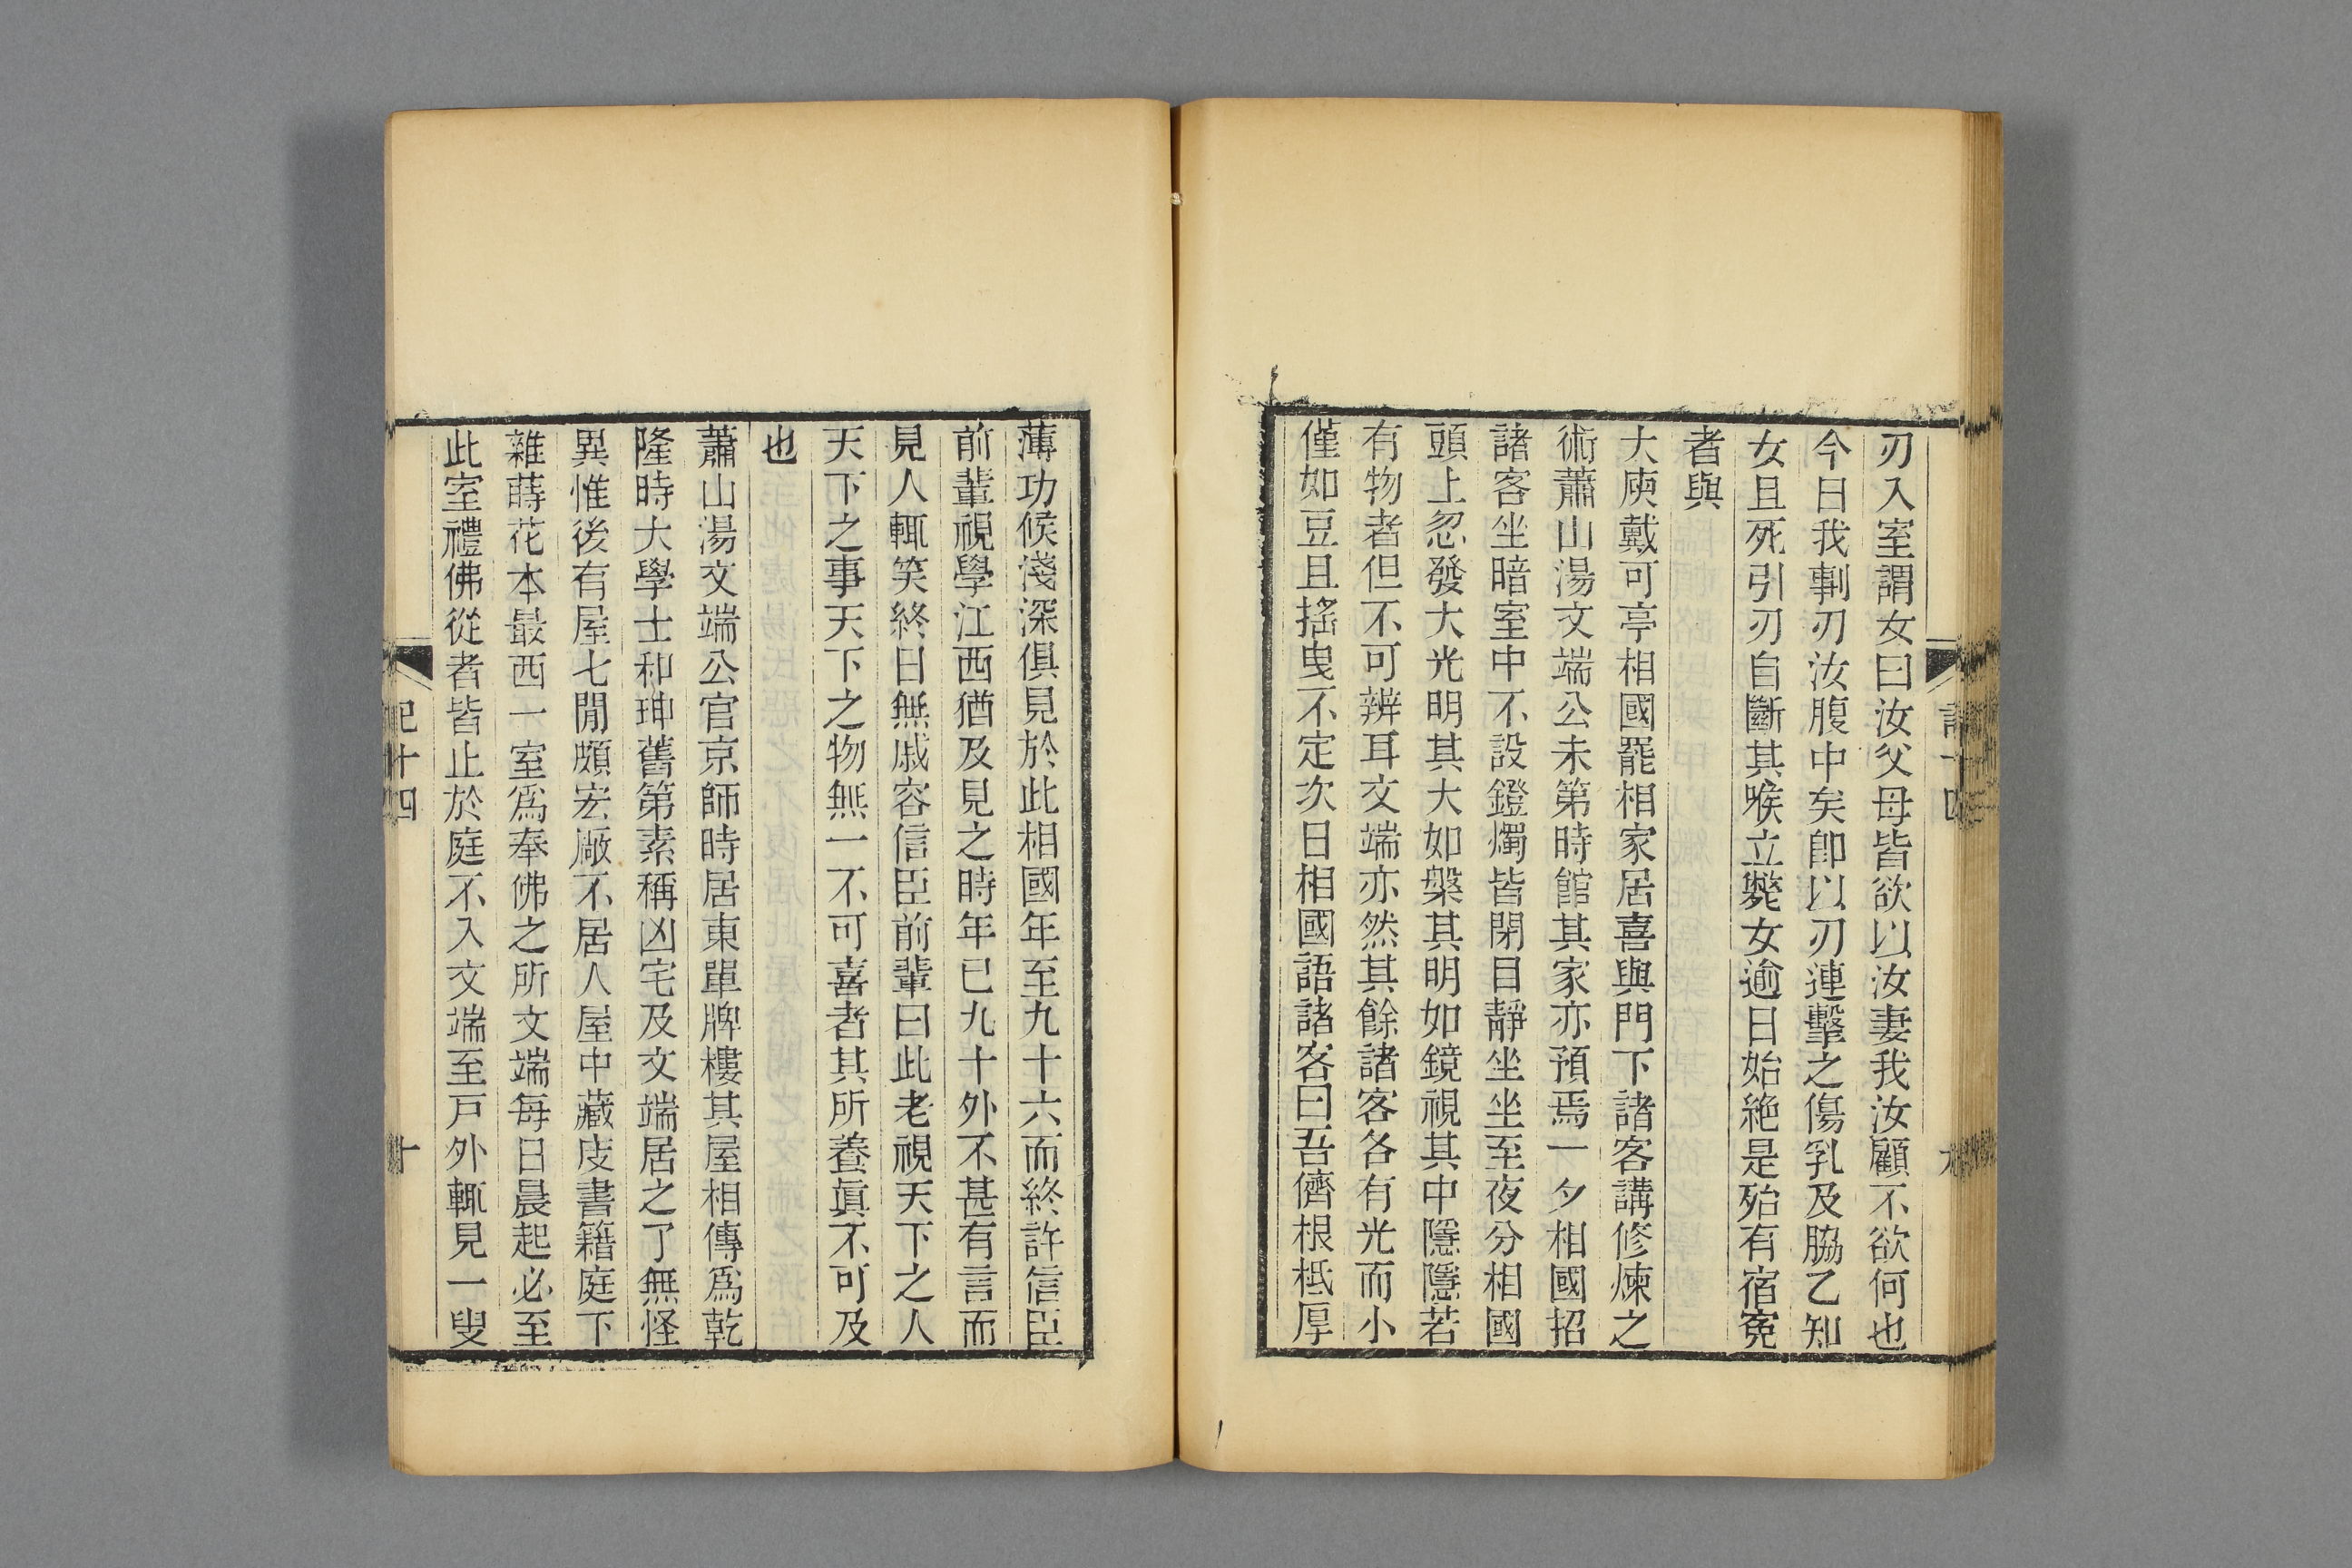 刃入室謂女曰汝父母皆欲以汝妻我汝顧不欲何也
今日我剚刃汝腹中矣卽以刃連擊之傷乳及脇乙知
女且死引刃自斷其喉立斃女逾日始絶是殆有宿寃
者與
大庾戴可亭相國罷相家居喜與門下諸客講修煉之
術蕭山湯文端公未第時館其家亦預焉一夕相國招
諸客坐暗室中不設鐙燭皆閉目靜坐坐至夜分相國
頭上忽發大光明其大如槃其明如鏡視其中隱隱若
有物者但不可辨耳文端亦然其餘諸客各有光而小
僅如豆且搖曳不定次日相國語諸客曰吾儕根柢厚
薄功候淺深俱見於此相國年至九十六而終許信臣
前輩視學江西猶及見之時年已九十外不甚有言而
見人輒笑終日無戚容信臣前輩曰此老視天下之人
天下之事天下之物無一不可喜者其所養眞不可及
也
蕭山湯文端公官京師時居東單牌樓其屋相傳爲乾
隆時大學士和珅舊第素稱凶宅及文端居之了無怪
異惟後有屋七閒頗宏厰不居人屋中藏庋書籍庭下
雜蒔花本最西一室爲奉佛之所文端每日晨起必至
此室禮佛從者皆止於庭不入文端至戸外輒見一叟
記十四
十